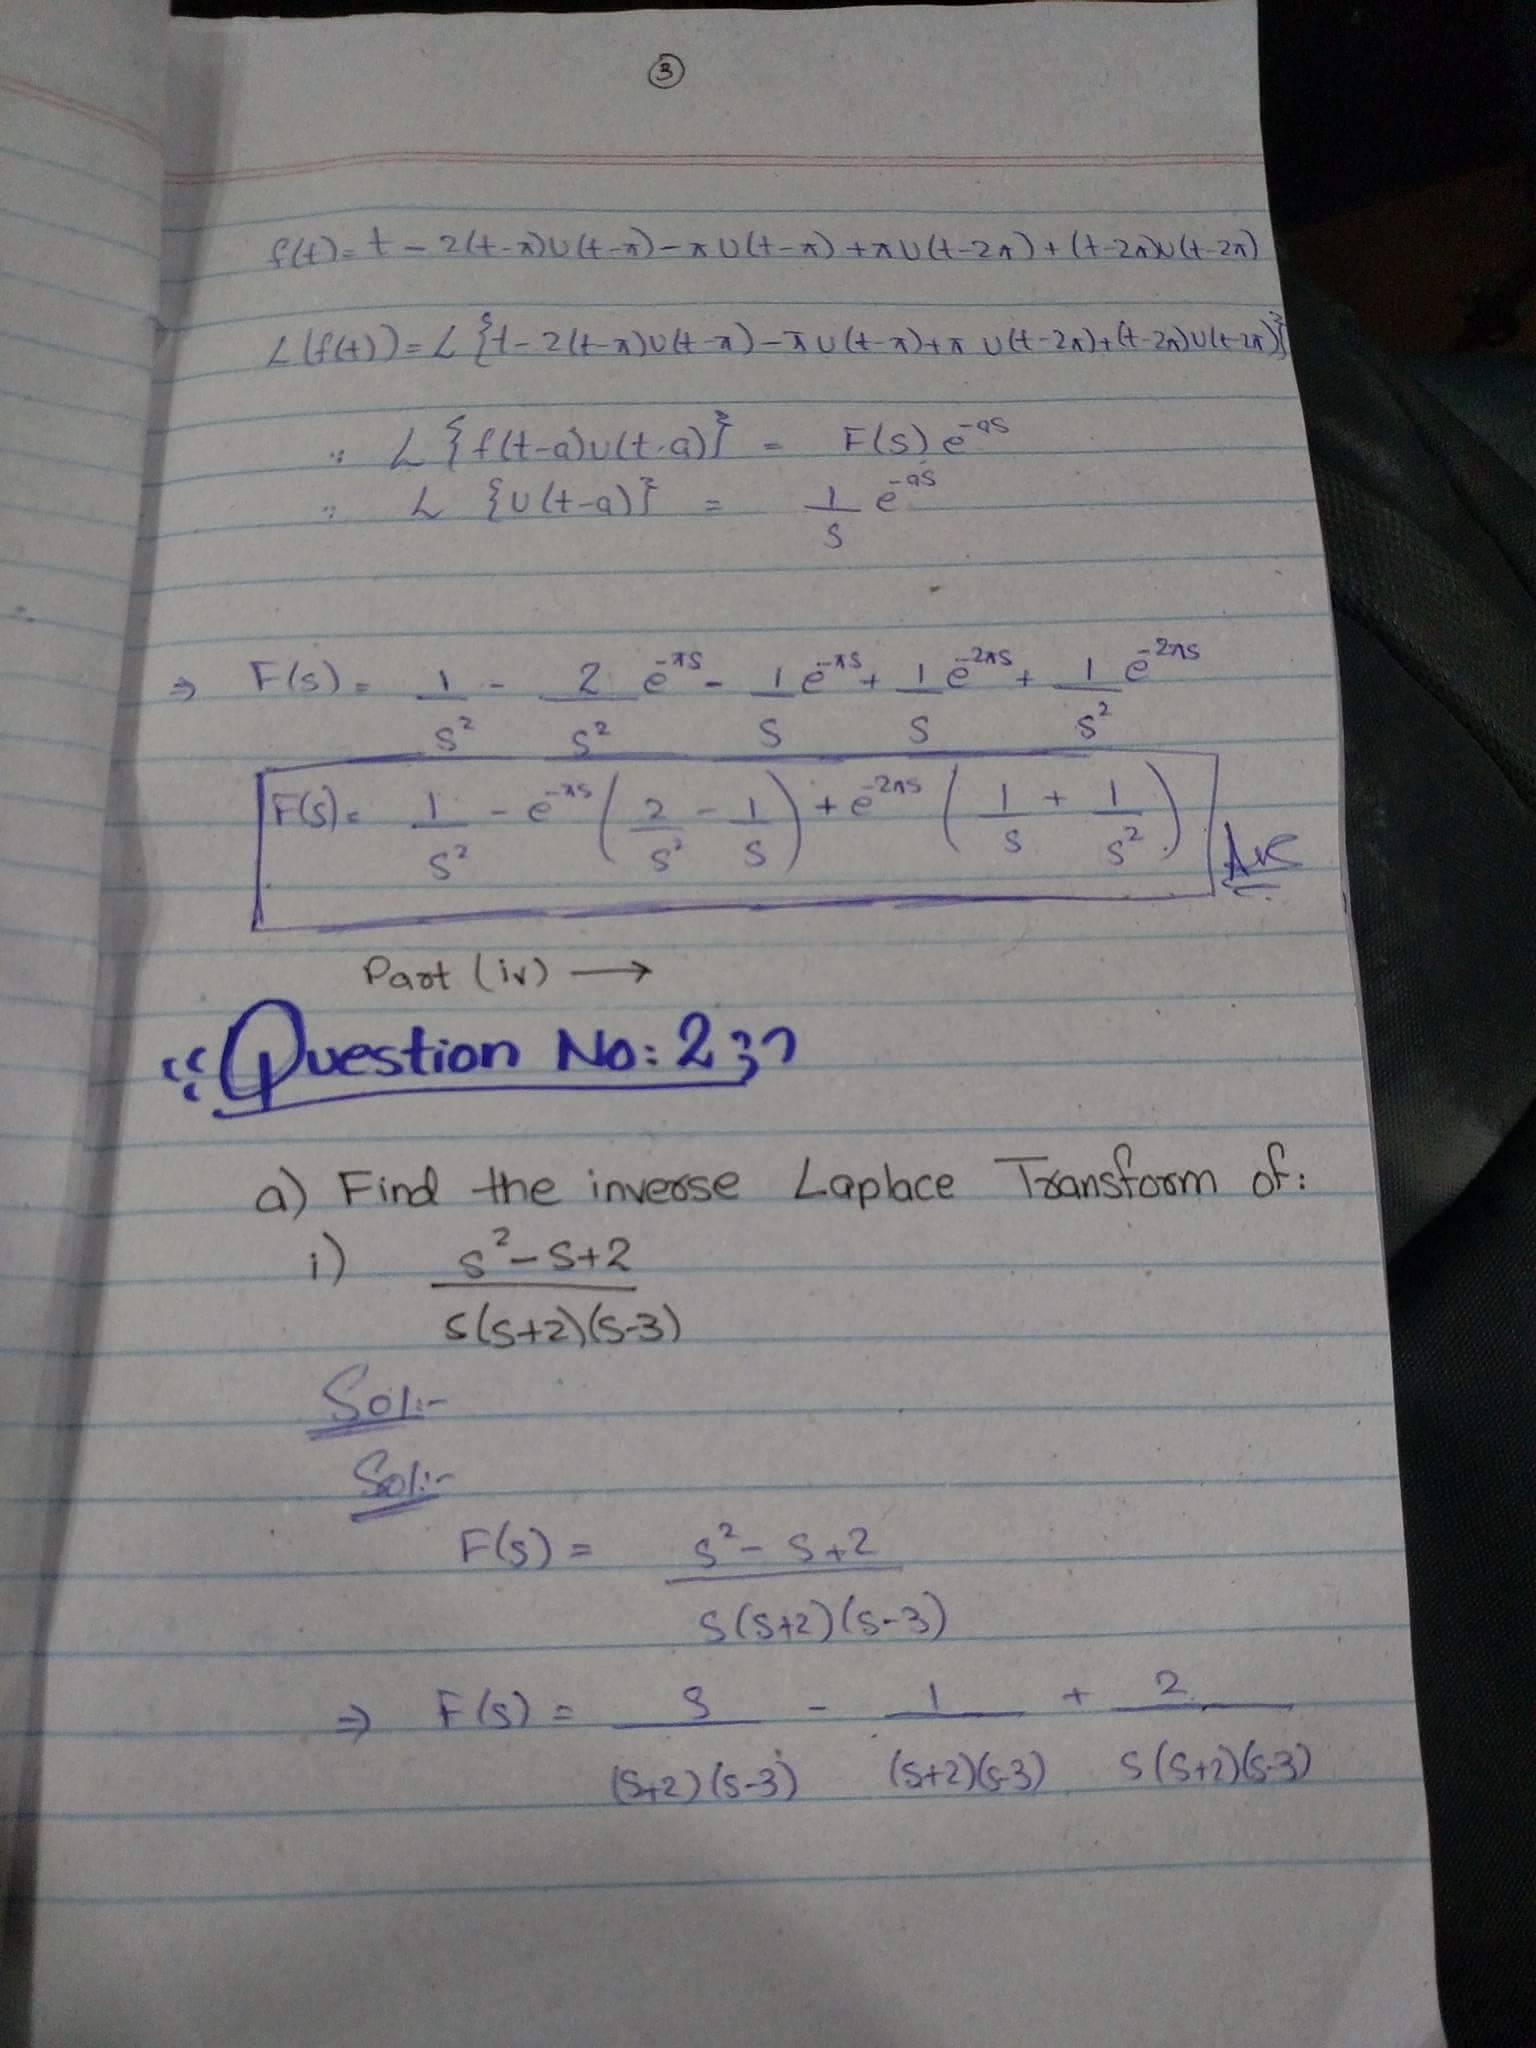 3
f(t) = t - 2(t-π)U(t-π) - πU(t-π) + πU(t-2π) + (t-2π)U(t-2π)
L(f(t)) = L{t - 2(t-π)U(t-π) - πU(t-π) + πU(t-2π) + (t-2π)U(t-2π)}
∵ L{f(t-a)U(t-a)} = F(s) e^-as
∵ L{U(t-a)} = 1/s e^-as
⇒ F(s) = 1/s² - 2/s² e^-πs - 1/s e^-πs + 1/s e^-2πs + 1/s² e^-2πs
F(s) = 1/s² - e^-πs (2/s² - 1/s) + e^-2πs (1/s + 1/s²) Ans
Part (iv) →
"Question No: 2"
a) Find the inverse Laplace Transform of:
i) s²-s+2 / s(s+2)(s-3)
Sol:-
Sol:-
F(s) = s²-s+2 / s(s+2)(s-3)
⇒ F(s) = s / (s+2)(s-3) - 1 / (s+2)(s-3) + 2 / s(s+2)(s-3)